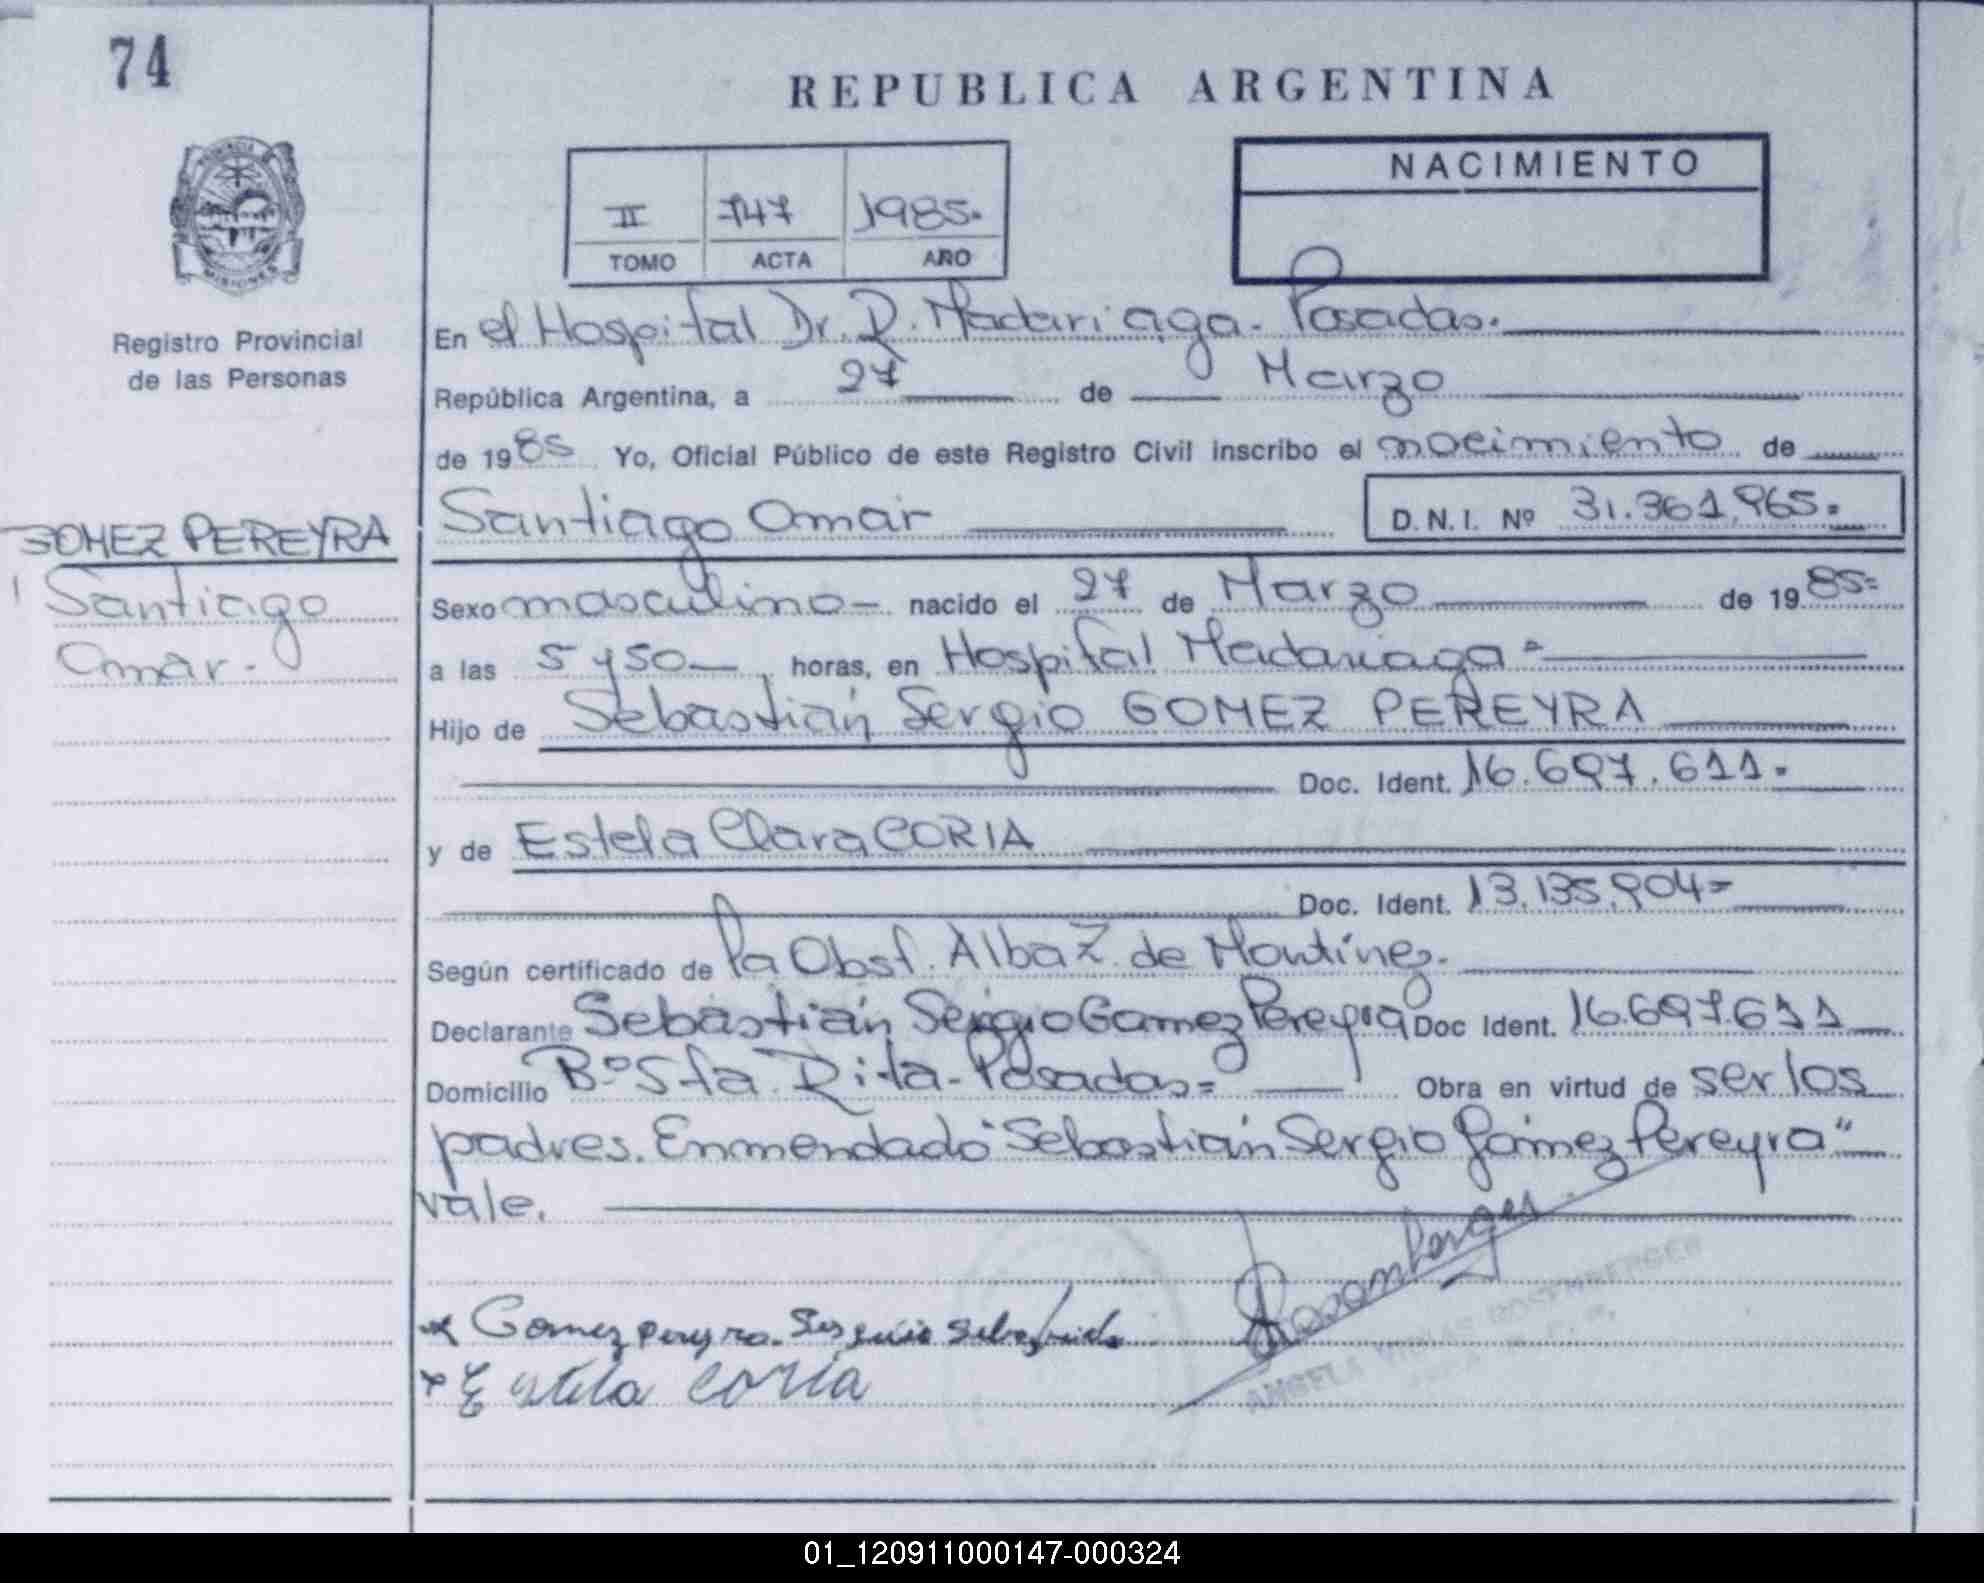 74
REPUBLICA ARGENTINA
NACIMIENTO
II 747 1985.
TOMO ACTA AÑO
PROVINCIA
MISIONES
Registro Provincial
de las Personas
En el Hospital Dr. R. Madariaga - Posadas.
República Argentina, a 27 de Marzo
de 1985 Yo, Oficial Público de este Registro Civil inscribo el nacimiento de
Santiago Omar D.N.I. Nº 31.361.965.=
GOMEZ PEREYRA
Santiago
Omar.-
Sexo masculino - nacido el 27 de Marzo de 1985=
a las 5 y 50 horas, en Hospital Madariaga =
Hijo de Sebastián Sergio GOMEZ PEREYRA
Doc. Ident. 16.697.611.=
y de Estela Clara CORIA
Doc. Ident. 13.135.904=
Según certificado de la Obst. Alba Z. de Martínez.
Declarante Sebastián Sergio Gomez Pereyra Doc Ident. 16.697.611
Domicilio Bº Sta. Rita - Posadas = Obra en virtud de ser los
padres. Enmendado "Sebastián Sergio Gómez Pereyra"
vale.
Gomez pereyra. Sergio Sebastian
Estela Coria
ANGELA ROSEMBERGER
01_120911000147-000324